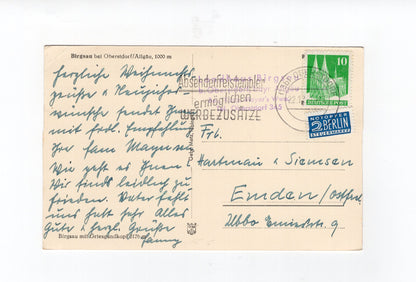 Birgsau bei Oberstdorf/Allgäu, 1000 m
herzliche Weihnachts-
grüße u Neujahrs-
wünsche sendet Ihnen
mit frdl. Empfehlung
Ihre fam Mayer
Wie geht es Ihnen?
Wir sind leidlich zu
frieden. Vater fehlt
uns halt sehr Alles
Gute u herzl. Grüße
Fanny
Birgsau mit
Absenderfreistempler
ermöglichen
WERBEZUSÄTZE
10
DEUTSCHE POST
NOTOPFER
2 BERLIN
STEUERMARKE
Frb.
Hartmann u Siemsen
Emden/Ostfrsl.
Ubbo Emiusstr. 9